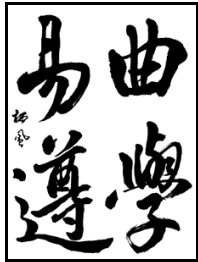 曲學
易遵